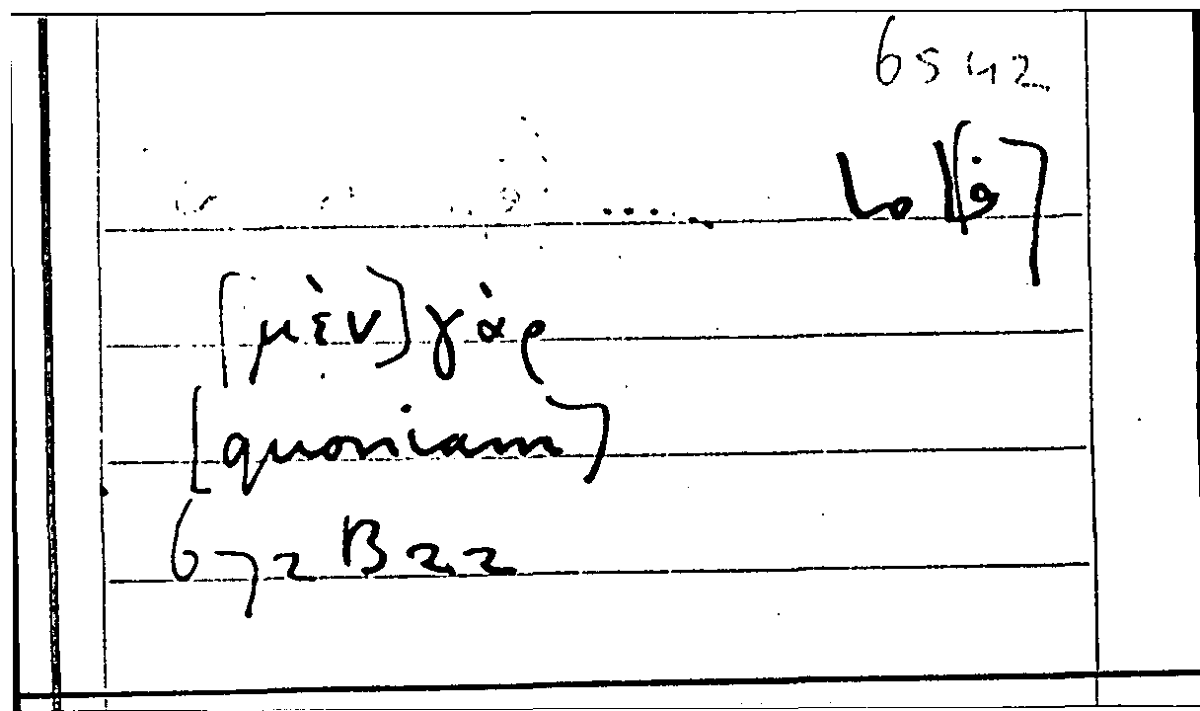 6542
[μὲν] γὰρ
[quoniam]
672 B 22